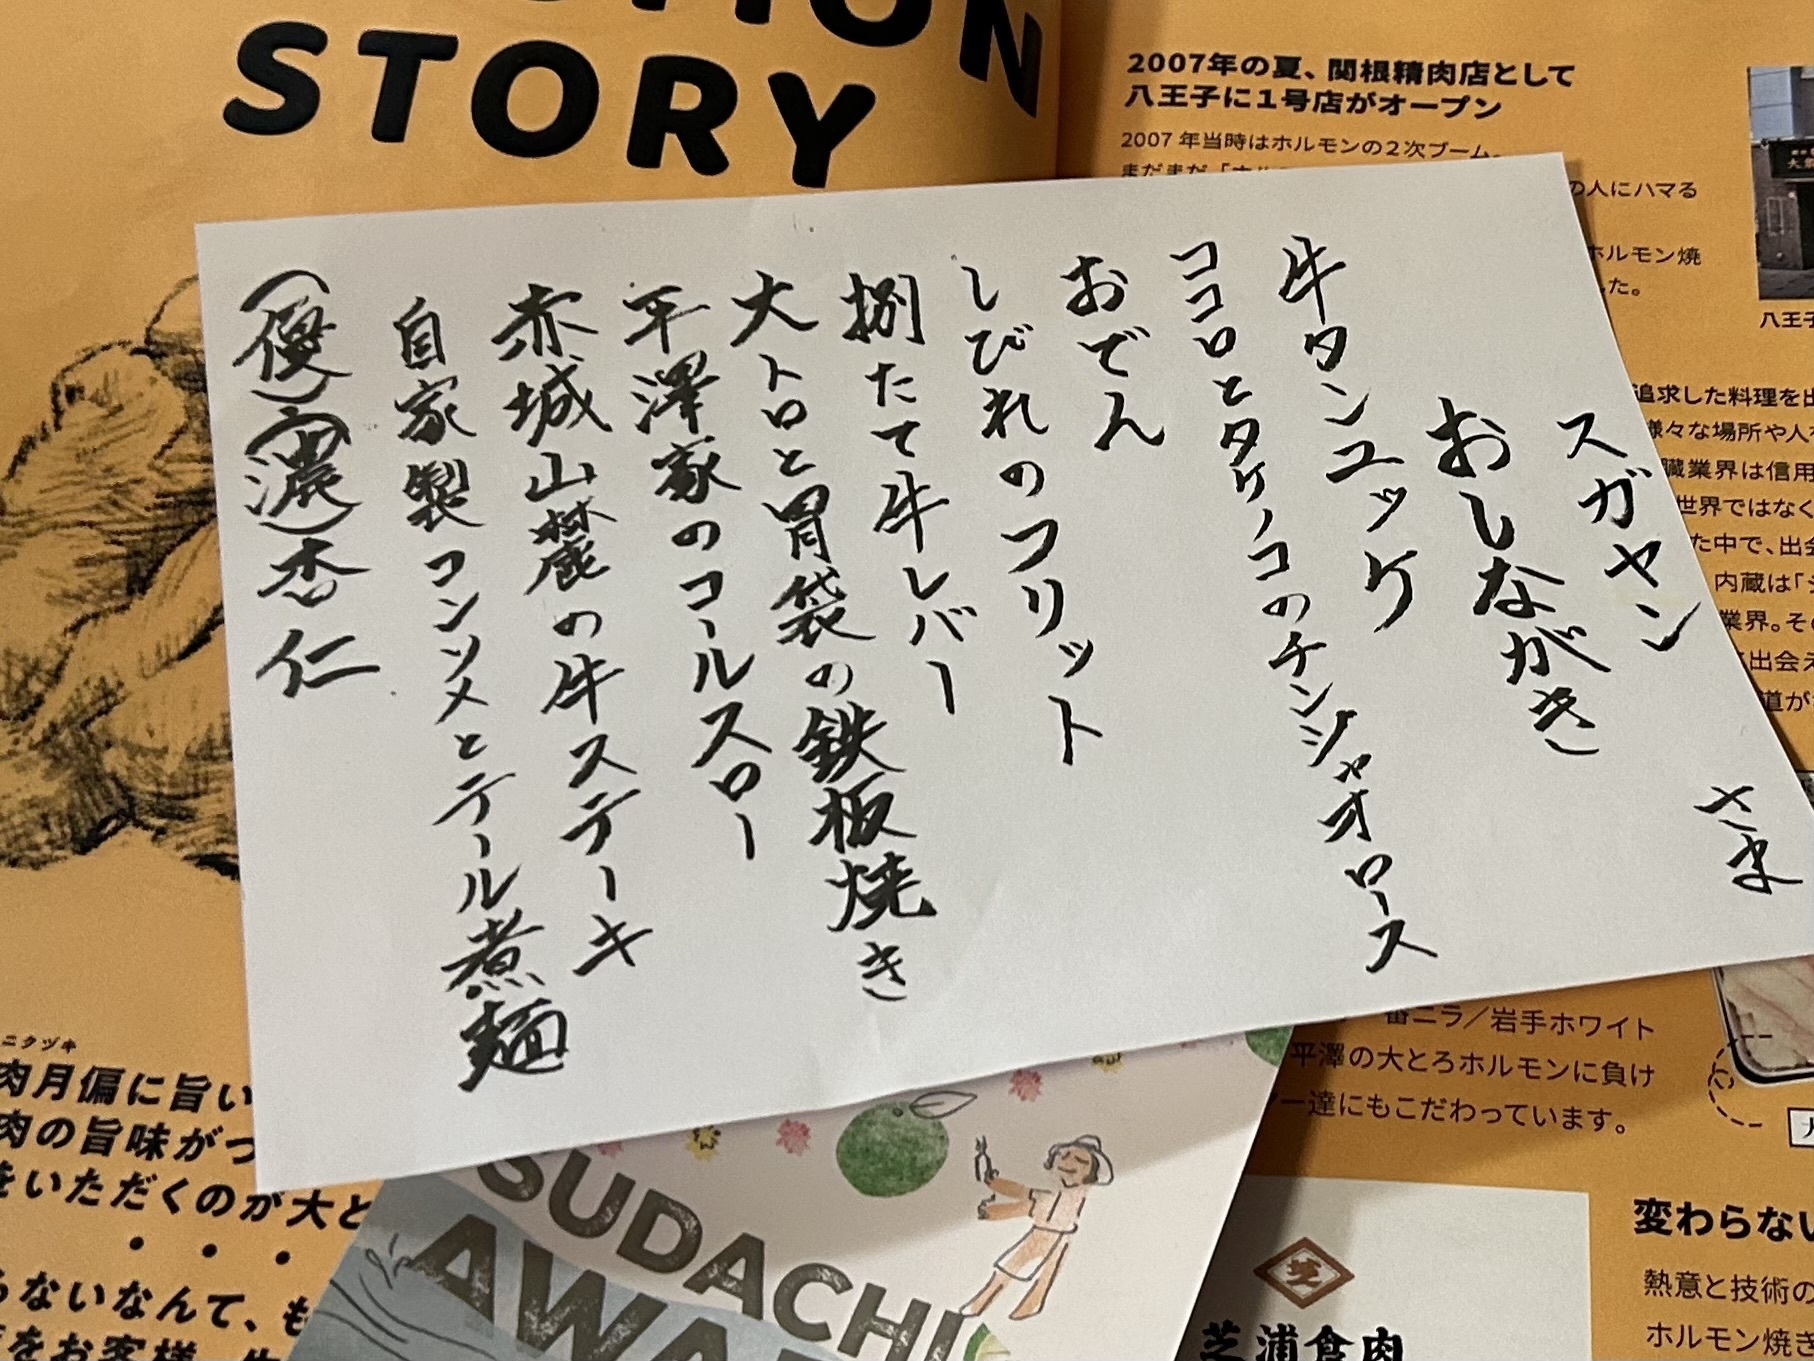 STORY
2007年の夏、関根精肉店として
八王子に1号店がオープン
2007年当時はホルモンの2次ブーム。
の人にハマる
ホルモン焼
した。
八王子
追求した料理を出
様々な場所や人
臓業界は信用
世界ではなく
た中で、出会
内蔵は「
業界。その
出会え
道が
スガヤン さま
おしながき
牛タンユッケ
ココロとタケノコのチンジャオロース
おでん
しびれのフリット
捌たて牛レバー
大トロと胃袋の鉄板焼き
平澤家のコールスロー
赤城山麓の牛ステーキ
自家製コンソメとテール煮麺
(優)(濃)杏仁
番ニラ／岩手ホワイト
平澤の大とろホルモンに負け
ー達にもこだわっています。
ニクヅキ
肉月偏に旨い
肉の旨味がつ
をいただくのが大と
らないなんて、も
をお客様
SUDACHI
AWA
芝
芝浦食肉
変わらない
熱意と技術の
ホルモン焼き